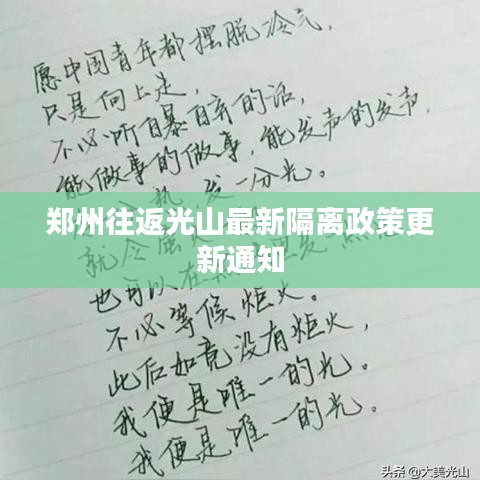 愿中国青年都摆脱冷气，
只是向上走，
不必听自暴自弃的话，
能做事的做事，能发声的发声，
发一分光。
郑州往返光山最新隔离政策更
新通知
不必等候炬火。
此后如竟没有炬火，
我便是唯一的光。
我便是唯一的光。
头条 @大美光山